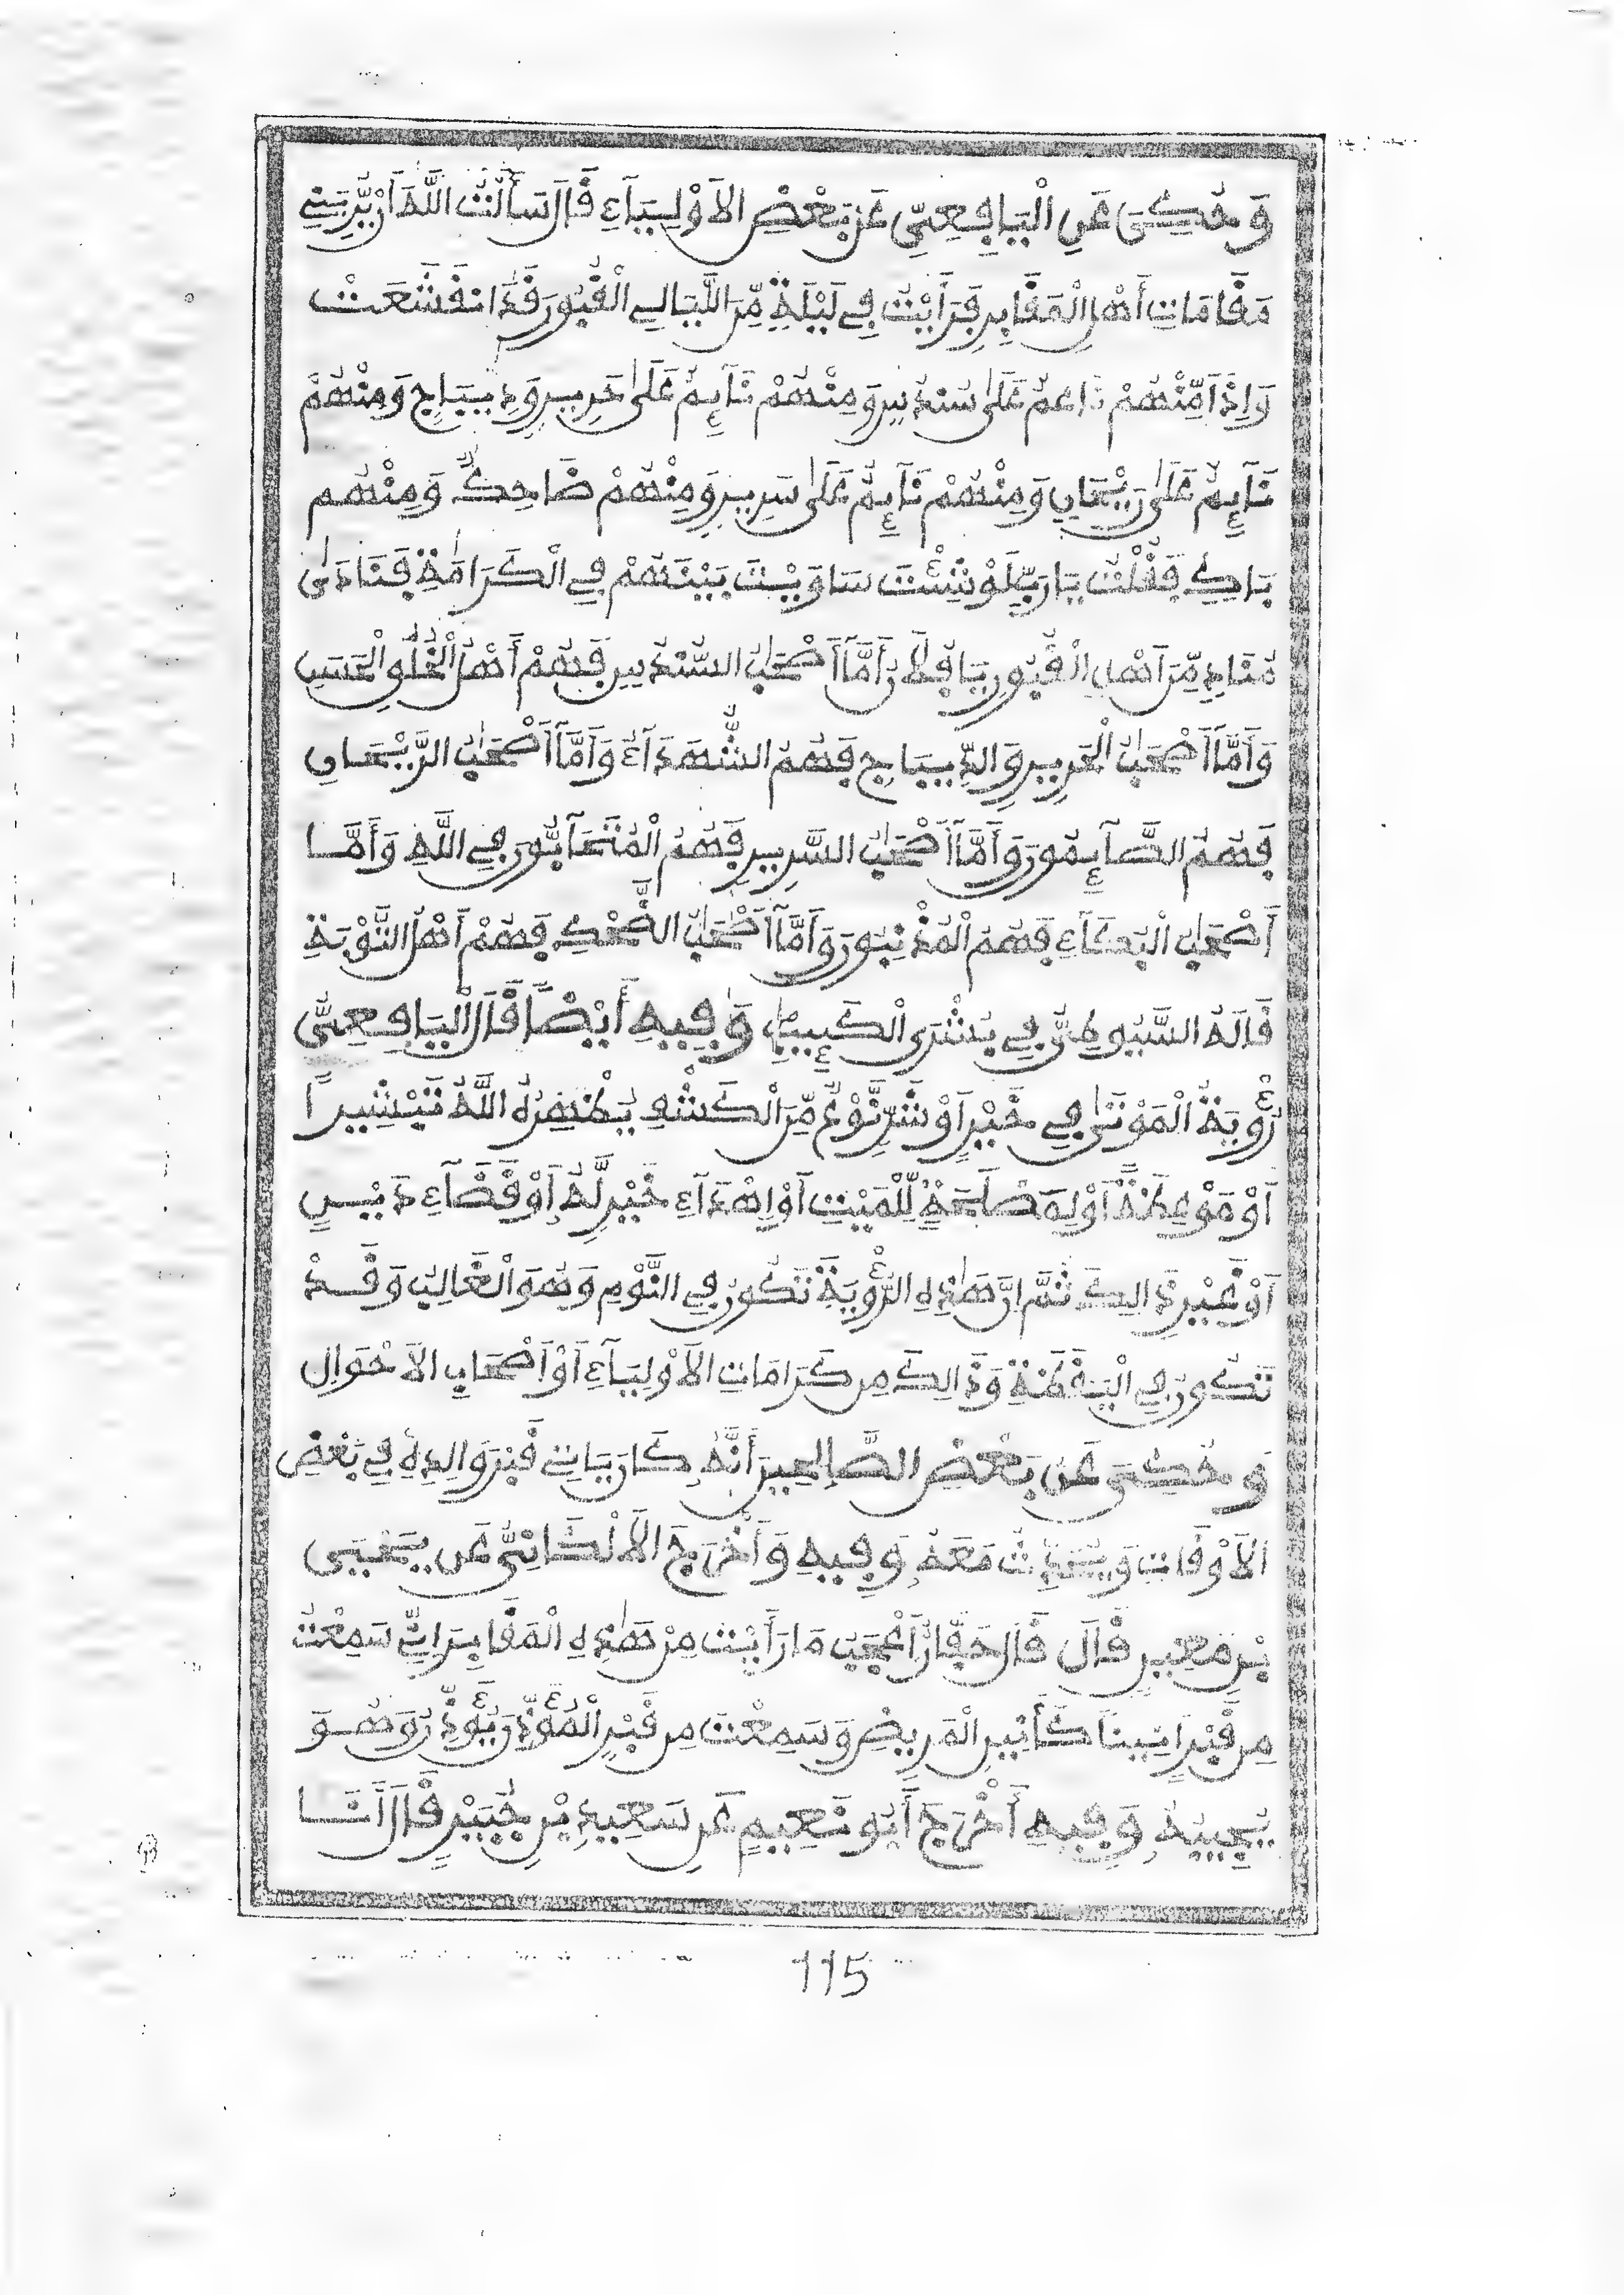 وَحُكِيَ عَنِ الْيَافِعِيِّ عَن بَعْضِ الاَوْلِيَآءِ قَالَ سَأَلْتُ اللَّهَ أَن يُّرِيَنِي
مَقَامَاتِ أَهْلِ الْمَقَابِرِ فَرَأَيْتُ فِي لَيْلَةٍ مِّنَ اللَّيَالِي الْقُبُورَ قَدَ انفَشَعَتْ
وَإِذَا مِنْهُمْ نَاعِمٌ عَلَىٰ سُندُسٍ وَمِنْهُمْ نَآئِمٌ عَلَىٰ حَرِيرٍ وَدِيبَاجٍ وَمِنْهُمْ
نَآئِمٌ عَلَىٰ رَيْحَانٍ وَمِنْهُمْ نَآئِمٌ عَلَىٰ سَرِيرٍ وَمِنْهُمْ ضَاحِكٌ وَمِنْهُم
بَاكٍ فَقُلْتُ يَا رَبِّ لَوْ شِئْتَ سَاوَيْتَ بَيْنَهُمْ فِي الْكَرَامَةِ فَنَادَىٰ
مُنَادٍ مِّنَ اَهْلِ الْقُبُورِ يَا فُلَانُ أَمَّآ أَصْحَٰبُ السُّندُسِ فَهُمْ أَهْلُ الْخُلُقِ الْحَسَنِ
وَأَمَّآ أَصْحَٰبُ الْحَرِيرِ وَالدِّيبَاجِ فَهُمُ الشُّهَدَآءُ وَأَمَّآ أَصْحَٰبُ الرَّيْحَانِ
فَهُمُ الصَّآئِمُونَ وَأَمَّآ أَصْحَٰبُ السَّرِيرِ فَهُمُ الْمُتَحَآبُّونَ فِي اللَّهِ وَأَمَّا
أَصْحَٰبُ الْبُكَآءِ فَهُمُ الْمُذْنِبُونَ وَأَمَّآ أَصْحَٰبُ الضَّحْكِ فَهُمْ أَهْلُ التَّوْبَةِ
قَالَهُ السُّيُوطِيُّ فِي بُشْرَى الْكَئِيبِ وَفِيهِ أَيْضًا قَالَ الْيَافِعِيُّ
رُؤْيَةُ الْمَوْتَىٰ فِي خَيْرٍ اَوْ شَرٍّ نَّوْعٌ مِّنَ الْكَشْفِ يُظْهِرُهُ اللَّهُ تَبْشِيرًا
أَوْ مَوْعِظَةً أَوْ لِمَصْلَحَةٍ لِّلْمَيِّتِ أَوْ اِهْدَآءِ خَيْرٍ لَّهُ أَوْ قَضَآءِ دَيْنٍ
أَوْ غَيْرِ ذَالِكَ ثُمَّ إِنَّ هَٰذِهِ الرُّؤْيَةَ تَكُونُ فِي النَّوْمِ وَهُوَ الْغَالِبُ وَقَدْ
تَكُونُ فِي الْيَقَظَةِ وَذَالِكَ مِن كَرَامَاتِ الاَوْلِيَآءِ أَوْ أَصْحَابِ الاَحْوَالِ
وَحُكِيَ عَن بَعْضِ الصَّالِحِينَ أَنَّهُ كَانَ يَاتِي قَبْرَ وَالِدِهِ فِي بَعْضِ
الاَوْقَاتِ وَيَتَحَدَّثُ مَعَهُ وَفِيهِ وَأَخْرَجَ الاَلْكَائِيُّ عَن يَحْيَى
بْنِ مَعِينٍ قَالَ قَالَ حَفَّارٌ أَعْجَبُ مَا رَأَيْتُ مِنْ هَٰذِهِ الْمَقَابِرِ إِنِّي سَمِعْتُ
مِن قَبْرٍ اَنِينًا كَأَنِينِ الْمَرِيضِ وَسَمِعْتُ مِن قَبْرٍ الْمُؤَذِّنَ يُؤَذِّنُ وَهُوَ
يُجِيبُهُ وَفِيهِ أَخْرَجَ أَبُو نُعَيْمٍ عَن سَعِيدِ بْنِ جُبَيْرٍ قَالَ أَنَا
115